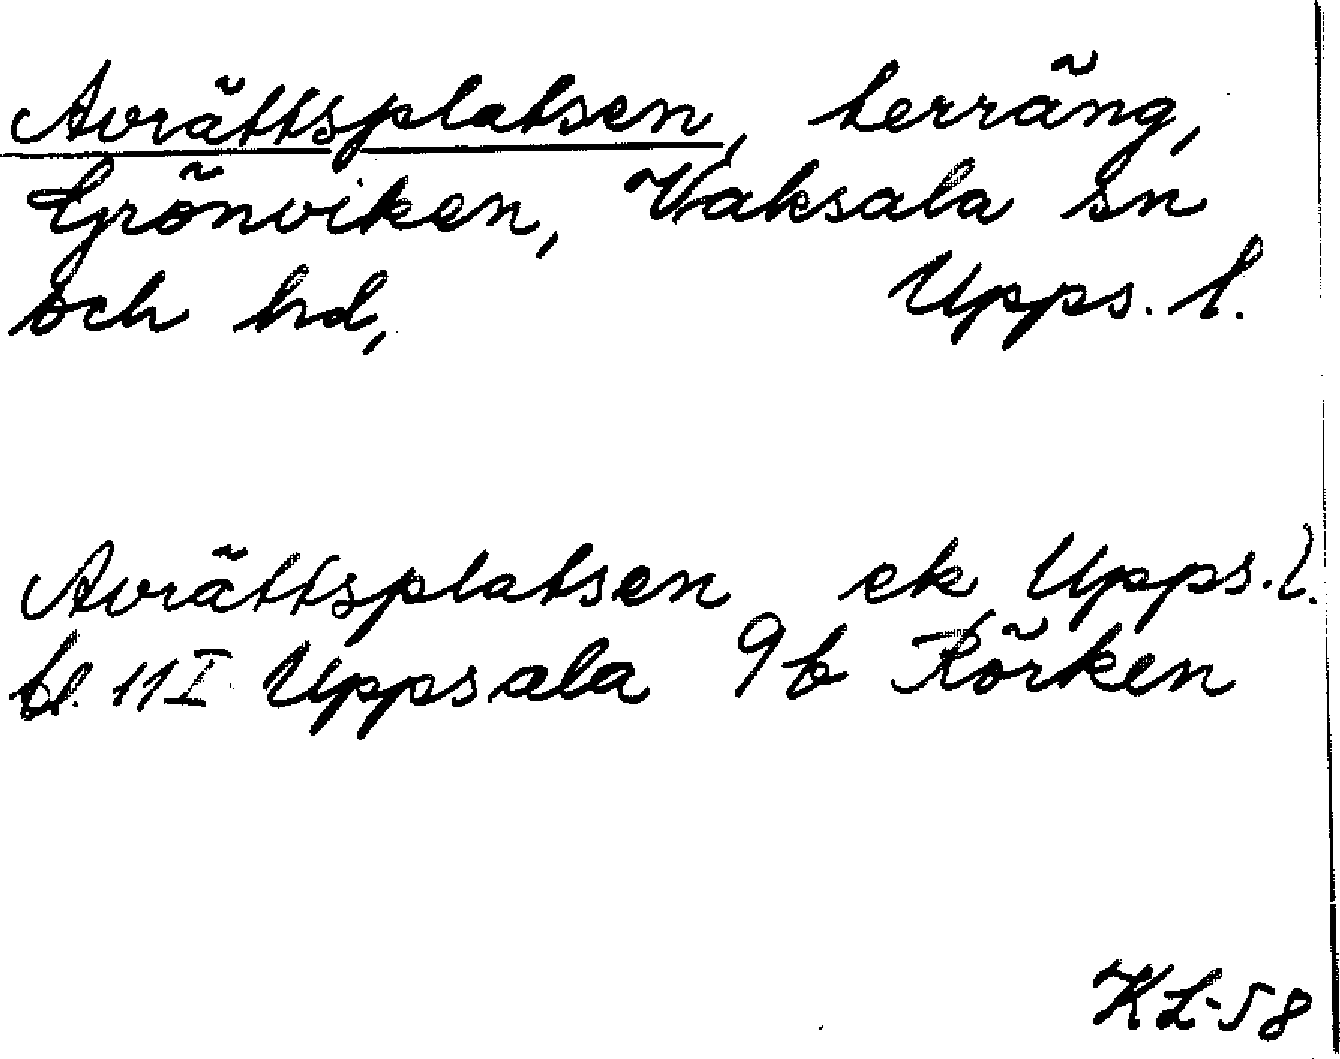 Avrättsplatsen, terräng,
Grönviken, Vaksala sn
och hd, Upps. l.
Avrättsplatsen ek Upps. l.
bl. 11 I Uppsala 9b Rörken
KL-58